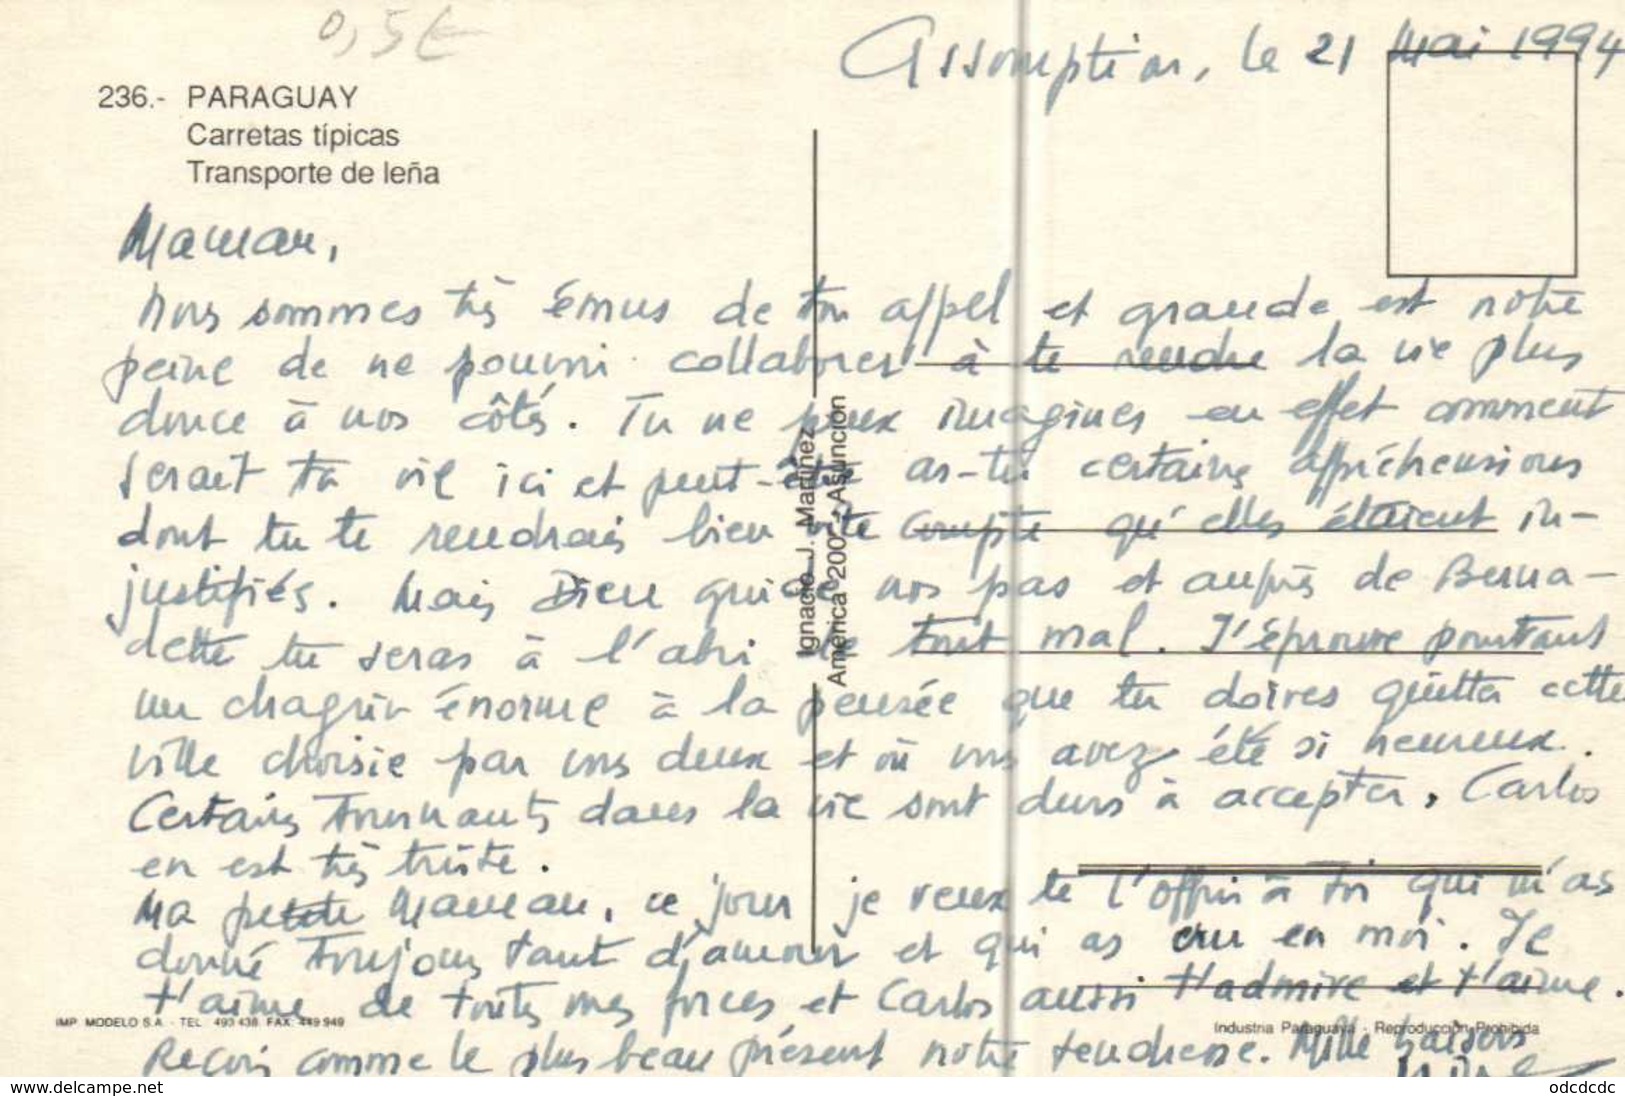 0,5€
Assomption, le 21 Mai 1994
236.- PARAGUAY
Carretas típicas
Transporte de leña
Maman,
Nous sommes très émus de ton appel et grande est notre
peine de ne pouvoir collaborer à te rendre la vie plus
douce à nos côtés. Tu ne peux imaginer en effet comment
serait ta vie ici et peut-être as-tu certaines appréhensions
dont tu te rendrais bien vite compte qu'elles étaient in-
justifiés. Mais Dieu guide nos pas et auprès de Berna-
dette tu seras à l'abri de tout mal. J'éprouve pourtant
un chagrin énorme à la pensée que tu doives quitter cette
ville choisie par vous deux et où vous avez été si heureux.
Certains tournants dans la vie sont durs à accepter, Carlos
en est très triste.
Ma petite Maman, ce jour je veux te l'offrir à toi qui m'as
donné toujours tant d'amour et qui as cru en moi. Je
t'aime de toutes mes forces et Carlos aussi t'admire et t'aime.
Reçois comme le plus beau présent notre tendresse. Mille baisers
Ignacio J. Martínez
América 200 - Asunción
IMP. MODELO S.A. - TEL. 493 438 FAX: 449 949
Industria Paraguaya - Reproducción Prohibida
www.delcampe.net
odcdcdc